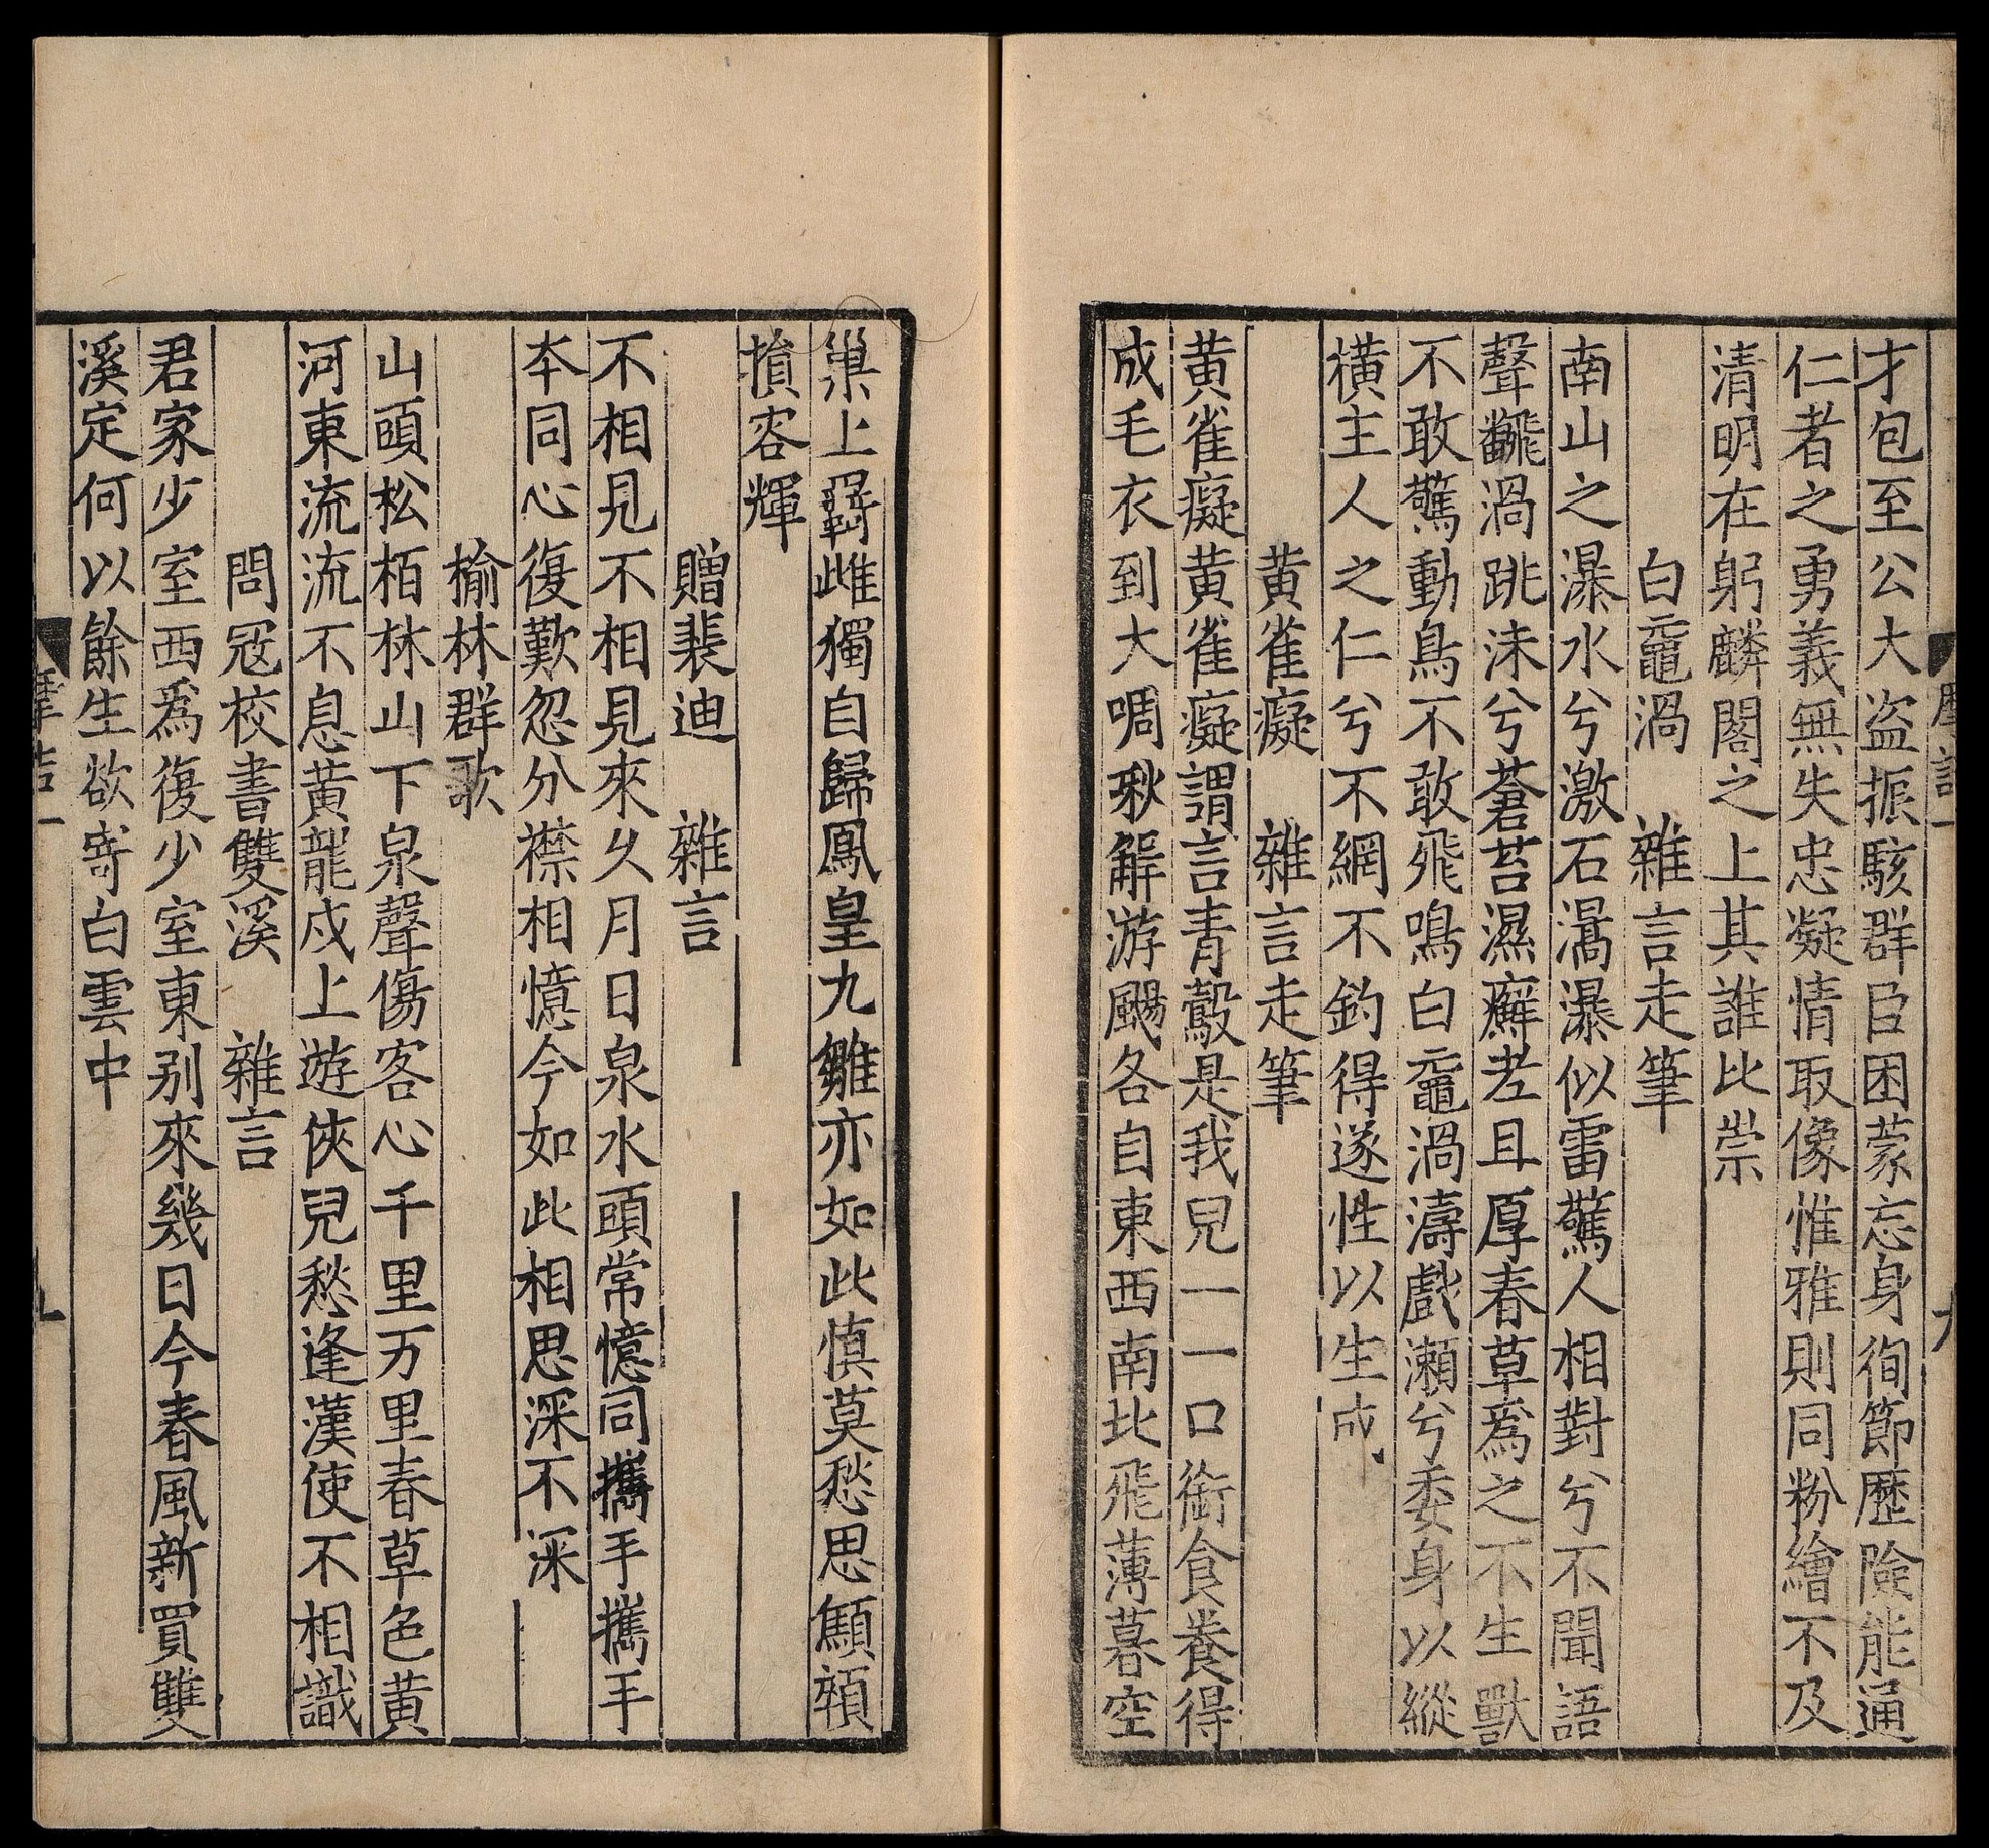 才包至公大盗振駭群臣困蒙忘身徇節歷險能通
仁者之勇義無失忠凝情取像惟雅則同粉繪不及
清明在躬麟閣之上其誰比崇
白黿渦 雜言走筆
南山之瀑水兮激石滈瀑似雷驚人相對兮不聞語
聲飜渦跳沫兮蒼苔濕蘚老且厚春草爲之不生獸
不敢驚動鳥不敢飛鳴白黿渦濤戲瀨兮委身以縱
橫主人之仁兮不網不釣得遂性以生成
黄雀癡 雜言走筆
黄雀癡黄雀癡謂言青鷇是我兒一一口銜食養得
成毛衣到大啁啾解游颺各自東西南北飛薄暮空
巢上羇雌獨自歸鳳皇九雛亦如此慎莫愁思顦顇
損容輝
贈裴迪 雜言
不相見不相見來久月日泉水頭常憶同攜手攜手
本同心復歎忽分襟相憶今如此相思深不深
榆林群歌
山頭松栢林山下泉聲傷客心千里万里春草色黄
河東流流不息黄龍戍上遊俠兒愁逢漢使不相識
問冦校書雙溪 雜言
君家少室西爲復少室東别來幾日今春風新買雙
溪定何以餘生欲寄白雲中